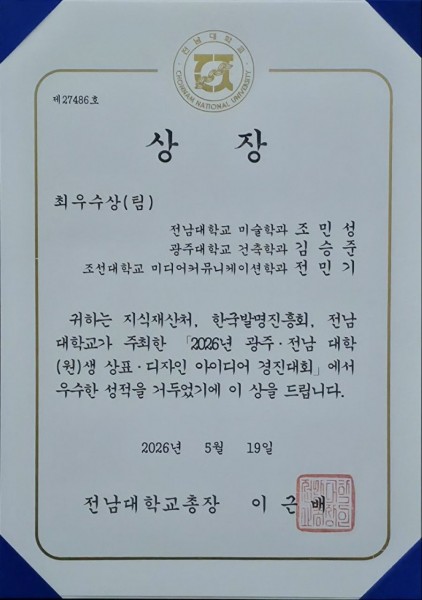 전남대학교
CHONNAM NATIONAL UNIVERSITY
제27486호
상 장
최우수상(팀)
전남대학교 미술학과 조민성
광주대학교 건축학과 김승준
조선대학교 미디어커뮤니케이션학과 전민기
귀하는 지식재산처, 한국발명진흥회, 전남
대학교가 주최한 「2026년 광주·전남 대학
(원)생 상표·디자인 아이디어 경진대회」에서
우수한 성적을 거두었기에 이 상을 드립니다.
2026년 5월 19일
전남대학교총장 이근배